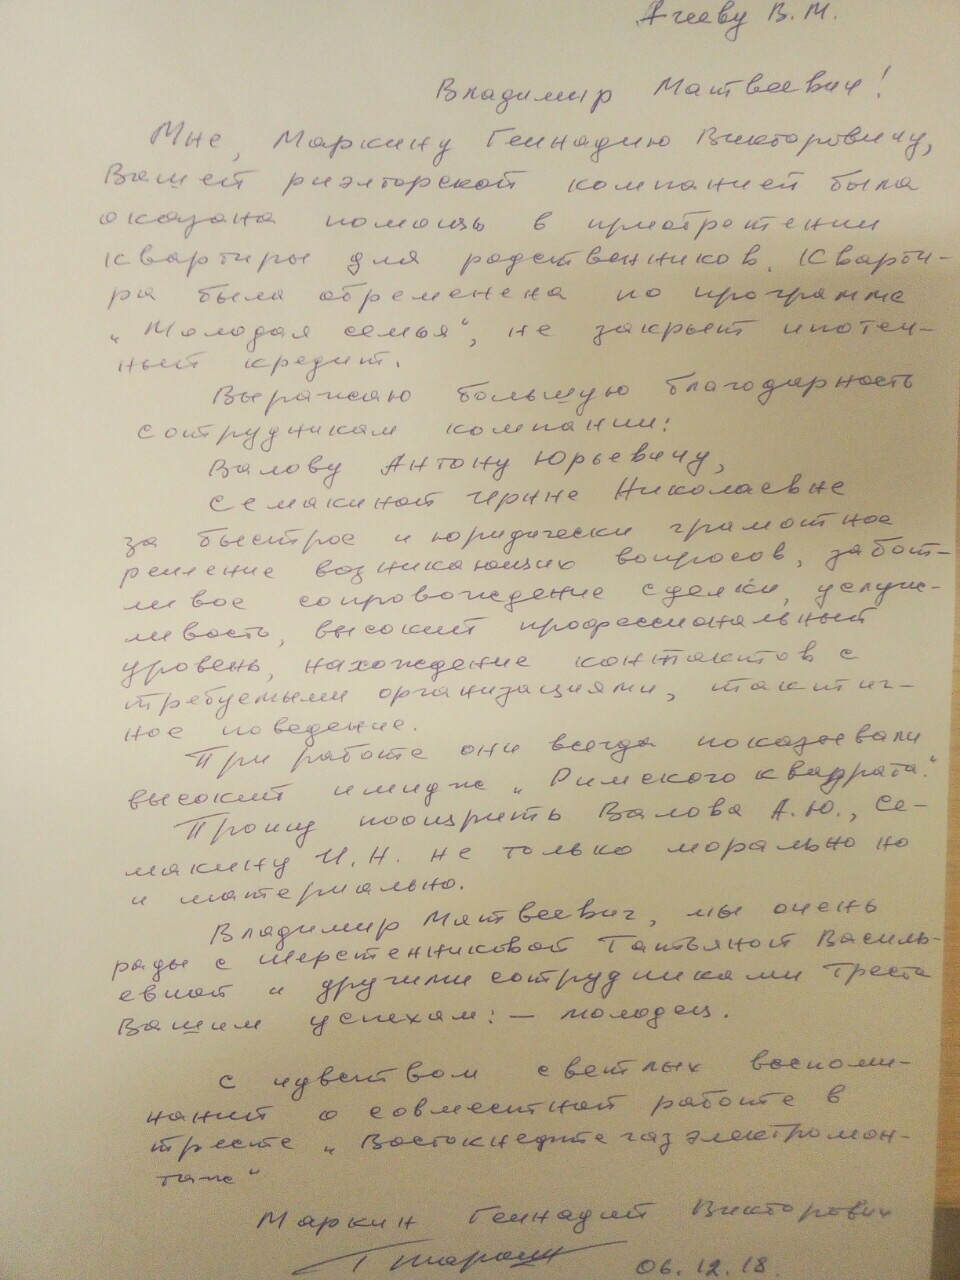 Агееву В. М.
Владимир Матвеевич!
Мне, Маркину Геннадию Викторовичу,
Вашей риэлторской компанией была
оказана помощь в приобретении
квартиры для родственников. Кварти-
ра была обременена по программе
„Молодая семья", не закрыт ипотеч-
ный кредит.
Выражаю большую благодарность
сотрудникам компании:
Валову Антону Юрьевичу,
Семакиной Ирине Николаевне
за быстрое и юридически грамотное
решение возникающих вопросов, забот-
ливое сопровождение сделки, услуж-
ливость, высокий профессиональный
уровень, нахождение контактов с
требуемыми организациями, тактич-
ное поведение.
При работе они всегда показывали
высокий имидж „Римского квадрата".
Прошу поощрить Валова А.Ю., Се-
макину И.Н. не только морально но
и материально.
Владимир Матвеевич, мы очень
рады с Шерстенниковой Татьяной Василь-
евной и другими сотрудниками Треста
Вашим успехам: – молодец.
С чувством светлых воспоми-
наний о совместной работе в
тресте „Востокнефтегазэлектромон-
таж"
Маркин Геннадий Викторович
06.12.18.